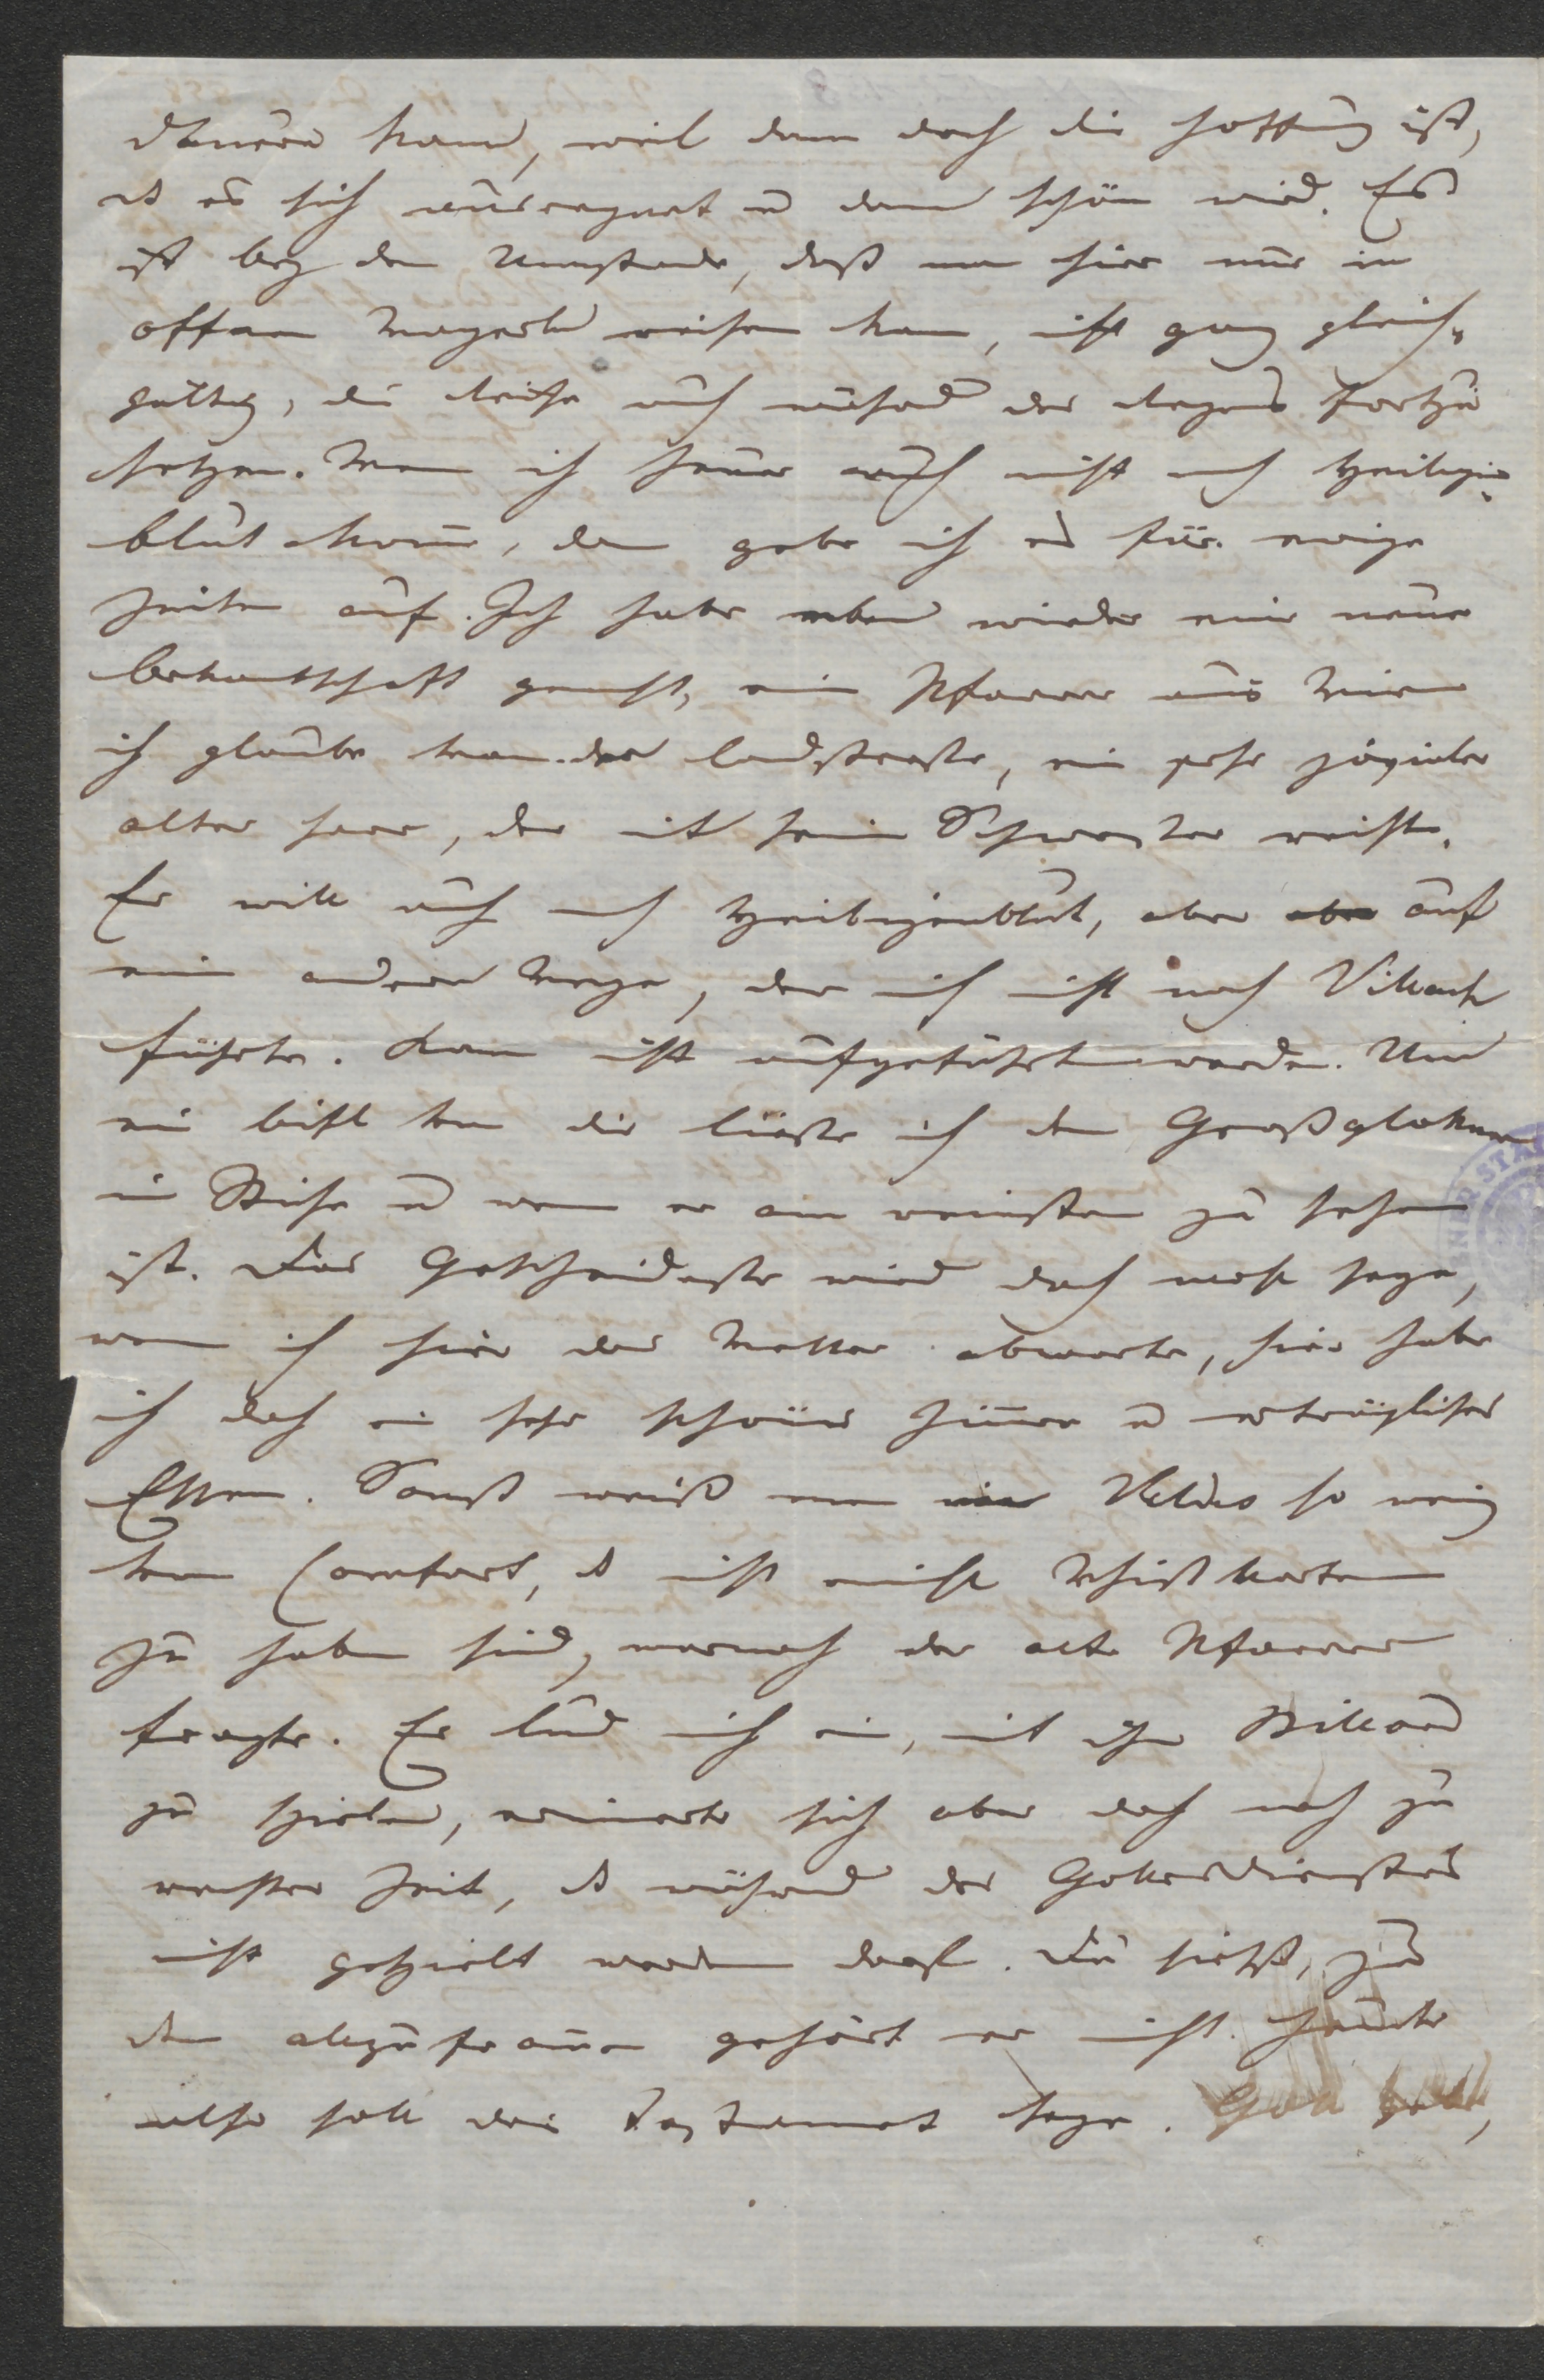 dauern kann, weil dann doch die Hoffnung ist,
ds es sich ausregnet u dann schön wird. Es
ist bey dem Umstande, daß man hier nur in
offenen Wagerln reisen kann, nicht ganz gleich„
gültig, die Reise auch während des Regens fortzu
setzen. Wenn ich heuer auch nicht nach Heiligen„
blut komme, dann gebe ich es für ewige
Zeiten auf. Ich habe eben wieder eine neue
Bekanntschaft gemacht, ein Pfarrer aus Wien
ich glaube von der Landstrasse, ein sehr jovialer
alter Herr, der mit seiner Schwester reist.
Er will auch nach Heiligenblut, aber auf
einem andern Wege, der mich nicht nach Villach
führte. Kann nicht aufgeführt werden. Um
ein Brief von dir ließe ich den Großglokner
im Stiche u wenn er am reinsten zu sehen
ist. Das Gescheideste wird doch wohl seyn,
wenn ich hier das Wetter abwarte, hier habe
ich doch ein sehr schönes Zimmer u erträgliches
Essen. Sonst weiß man in Veldes so wenig
von Comfort, ds nicht einmal Whistkarten
zu haben sind, wornach der alte Pfarrer
fragte. Er lud mich ein, mit ihm Billard
zu spielen, erinnerte sich aber doch noch zu
rechter Zeit, ds während des Gottesdienstes
nicht gespielt werden darf. Du siehst, zu
den allzufrommen gehört er nicht. Heute
also soll das Testament seyn. Gott